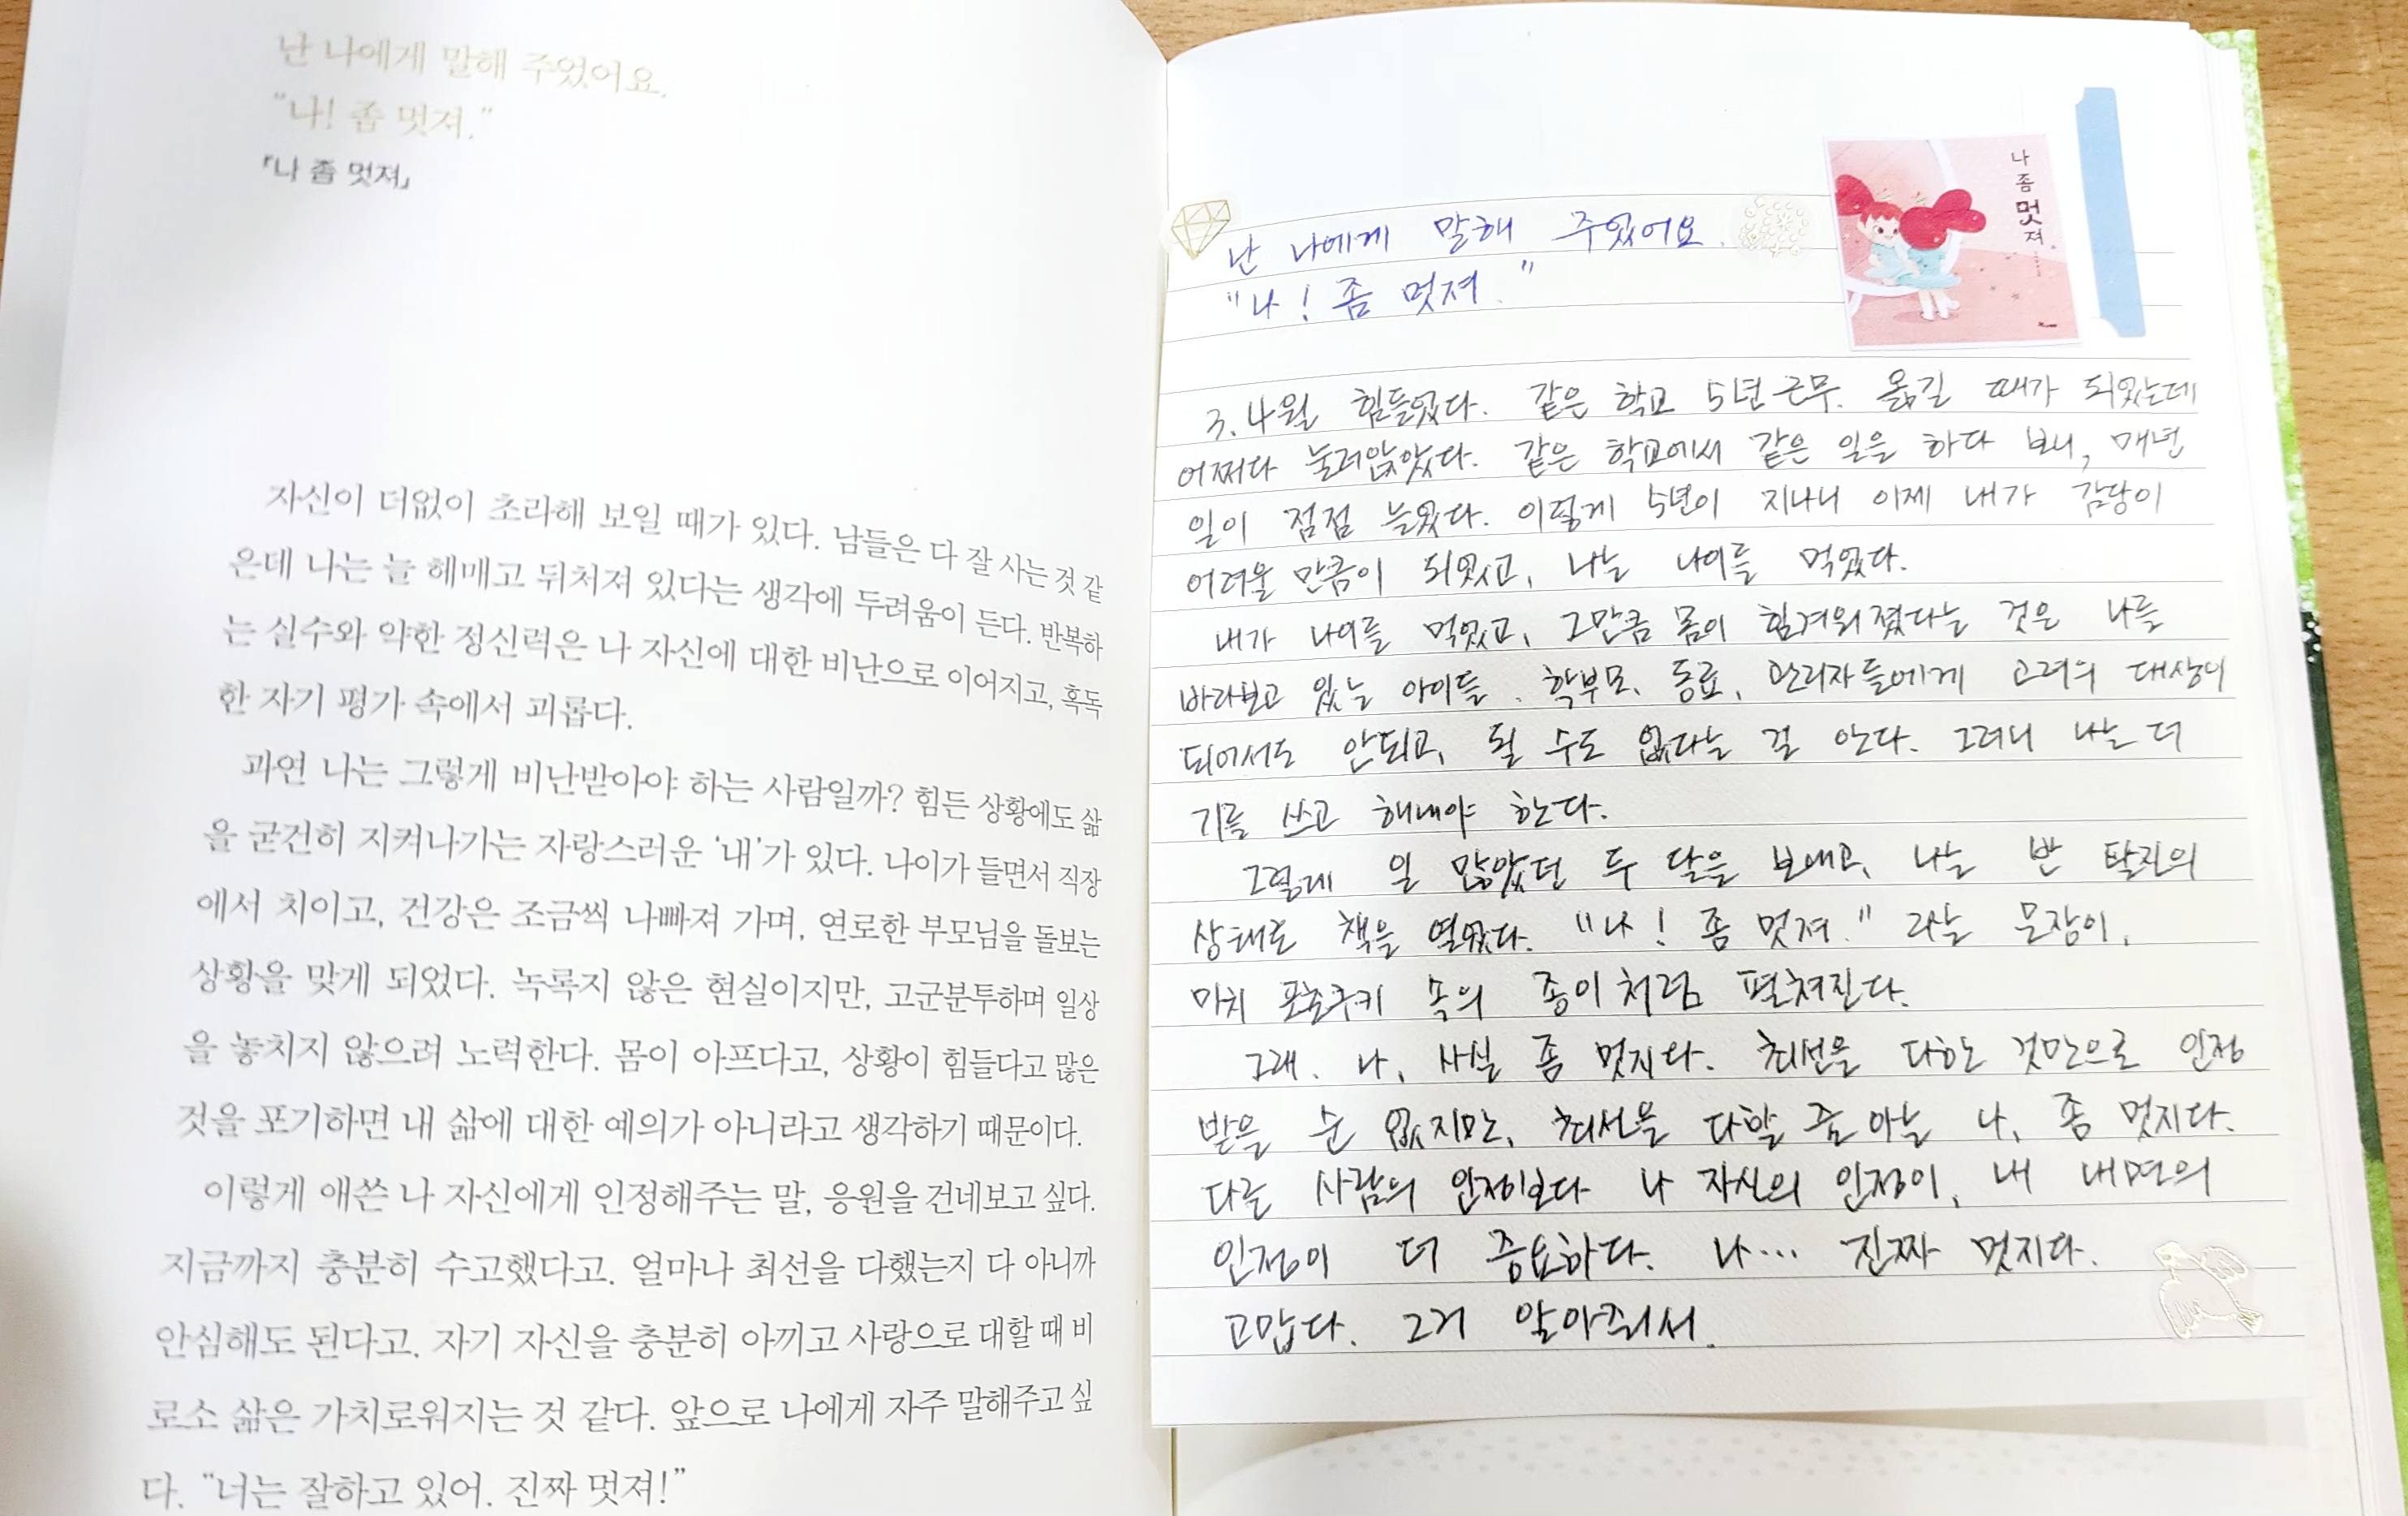 난 나에게 말해 주었어요.
“나! 좀 멋져.”
『나 좀 멋져』
자신이 더없이 초라해 보일 때가 있다. 남들은 다 잘 사는 것 같
은데 나는 늘 헤매고 뒤처져 있다는 생각에 두려움이 든다. 반복하
는 실수와 약한 정신력은 나 자신에 대한 비난으로 이어지고, 혹독
한 자기 평가 속에서 괴롭다.
과연 나는 그렇게 비난받아야 하는 사람일까? 힘든 상황에도 삶
을 굳건히 지켜나가는 자랑스러운 ‘내’가 있다. 나이가 들면서 직장
에서 치이고, 건강은 조금씩 나빠져 가며, 연로한 부모님을 돌보는
상황을 맞게 되었다. 녹록지 않은 현실이지만, 고군분투하며 일상
을 놓치지 않으려 노력한다. 몸이 아프다고, 상황이 힘들다고 많은
것을 포기하면 내 삶에 대한 예의가 아니라고 생각하기 때문이다.
이렇게 애쓴 나 자신에게 인정해주는 말, 응원을 건네보고 싶다.
지금까지 충분히 수고했다고. 얼마나 최선을 다했는지 다 아니까
안심해도 된다고. 자기 자신을 충분히 아끼고 사랑으로 대할 때 비
로소 삶은 가치로워지는 것 같다. 앞으로 나에게 자주 말해주고 싶
다. “너는 잘하고 있어. 진짜 멋져!”
난 나에게 말해 주었어요.
"나! 좀 멋져."
나 좀 멋져
3.4월 힘들었다. 같은 학교 5년 근무. 옮길 때가 되었는데
어쩌다 눌러앉았다. 같은 학교에서 같은 일을 하다 보니, 매년
일이 점점 늘었다. 이렇게 5년이 지나니 이제 내가 감당이
어려울 만큼이 되었고, 나는 나이를 먹었다.
내가 나이를 먹었고, 그만큼 몸이 힘겨워졌다는 것은 나를
바라보고 있는 아이들. 학부모. 동료, 관리자들에게 고려의 대상이
되어서도 안되고, 될 수도 없다는 걸 안다. 그러니 나는 더
기를 쓰고 해내야 한다.
그렇게 일 많았던 두 달을 보내고, 나는 반 탈진의
상태로 책을 열었다. "나! 좀 멋져." 라는 문장이,
마치 포춘쿠키 속의 종이처럼 펼쳐진다.
그래. 나, 사실 좀 멋지다. 최선을 다하는 것만으로 인정
받을 순 없지만, 최선을 다할 줄 아는 나, 좀 멋지다.
다른 사람의 인정보다 나 자신의 인정이, 내 내면의
인정이 더 중요하다. 나... 진짜 멋지다.
고맙다. 그거 알아줘서.